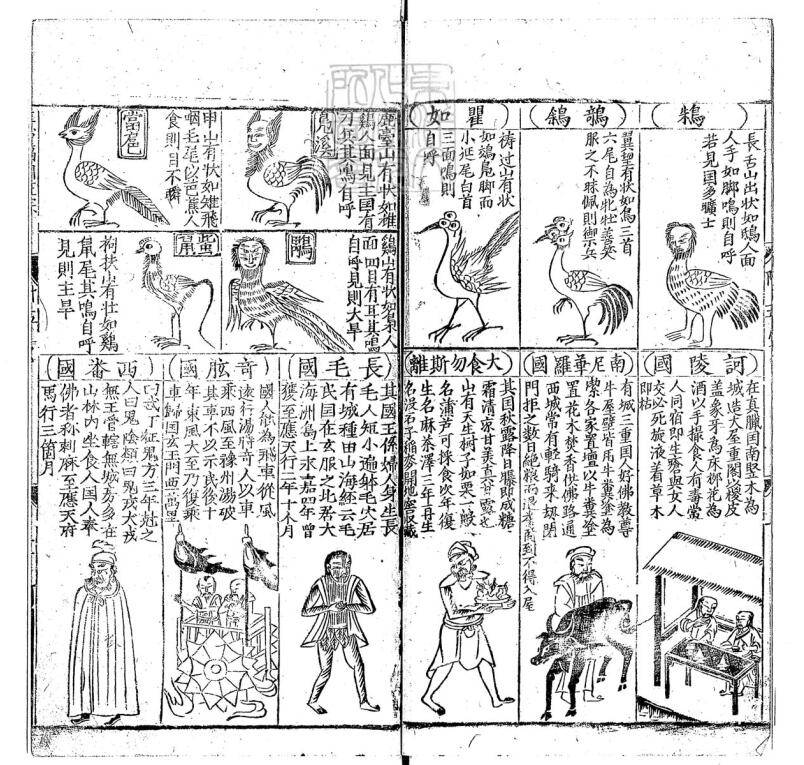 鴸
長舌山出状如鴟人面
人手如脚鳴則自呼
若見国多曠士
鵸鵌
翼望有状如烏三首
六尾自為牝牡善笑
服之不昧佩則禦兵
瞿如
祷过山有状
三面鳴則
自呼
鳧徯
鹿臺山有状如雄
鷄人面見主国有
刀兵其鳴自呼
當扈
申山有状如雉飛
咽毛尾以芭蕉人
食則目不瞬
鷄山有状如梟人
面四目有耳其鳴
自呼見則大旱
拘扶山有壮如鷄
鼠尾其鳴自呼
見則主旱
訶陵國
在真臘国南竪木為
城造大屋重閣以椶皮
盖象牙為床椰花為
酒以手撮食人有毒常
人同宿即生瘡与女人
交必死旋液着草木
即枯
南尼華羅國
有城三重国人好佛教尊
牛屋壁皆用牛糞塗為
潔各家置壇以牛糞塗
置花木焚香供佛路通
西域常有軽騎来劫閉
門拒之数日絶粮
大食勿斯離
其国秋露降日曝即成糖
霜清凉甘美真甘露也
山有天生树子如栗一賧
名蒲芦可採食次年復
生名麻茶澤三年再生
名没石子
長毛國
其國王係婦人身生長
毛人短小遍躰毛穴居
有城種田山海經云毛
民国在玄股之北晋大
海洲島上永嘉四年曾
獲至應天行二年十个月
奇肱國
國人能為飛車從風
遠行湯時奇人以車
乘西風至豫州湯破
其車不以示民後十
年東風大至乃復乘
車歸国玄玉門西一萬里
西番國
人曰鬼陰類曰鬼戎犬戎
無王管轄無城旁多在
山林内坐食人国人奉
佛者称剌麻至應天府
馬行三箇月